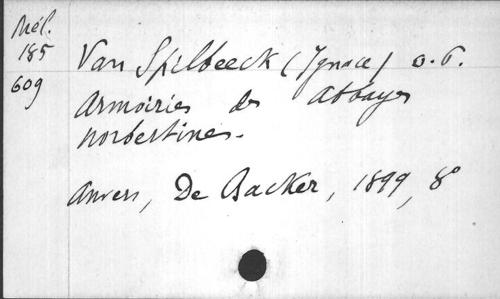 Mél.
185
609
Van Spilbeeck (Ignace) o. P.
Armoiries des Abbayes
norbertines.
Anvers, De Backer, 1899, 8°